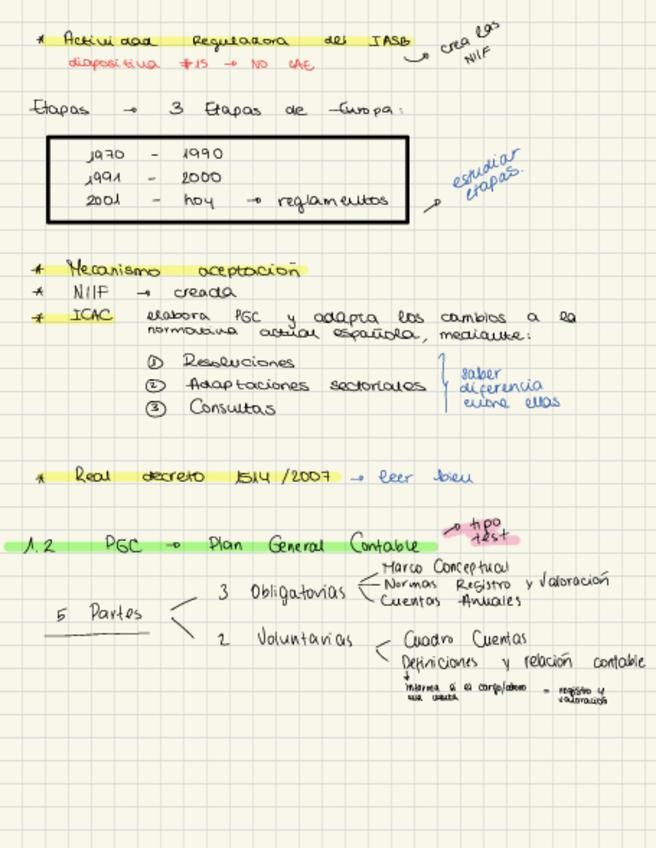 * Actividad Reguladora del IASB → crea las NIIF
diapositiva #15 → NO CAE
Etapas → 3 Etapas de Europa:
1970 - 1990
1991 - 2000
2001 - hoy → reglamentos
→ estudiar etapas.
* Mecanismo aceptación
* NIIF → creada
* ICAC elabora PGC y adapta los cambios a la
normativa actual española, mediante:
① Resoluciones
② Adaptaciones sectoriales
③ Consultas
saber
diferencia
entre ellas
* Real decreto 1514/2007 → leer bien
1.2 PGC → Plan General Contable → tipo test
5 Partes
3 Obligatorias
Marco Conceptual
Normas Registro y Valoración
Cuentas Anuales
2 Voluntarias
Cuadro Cuentas
Definiciones y relación contable
↓
informa si es cargo/abono = registro y
una cuenta valoración